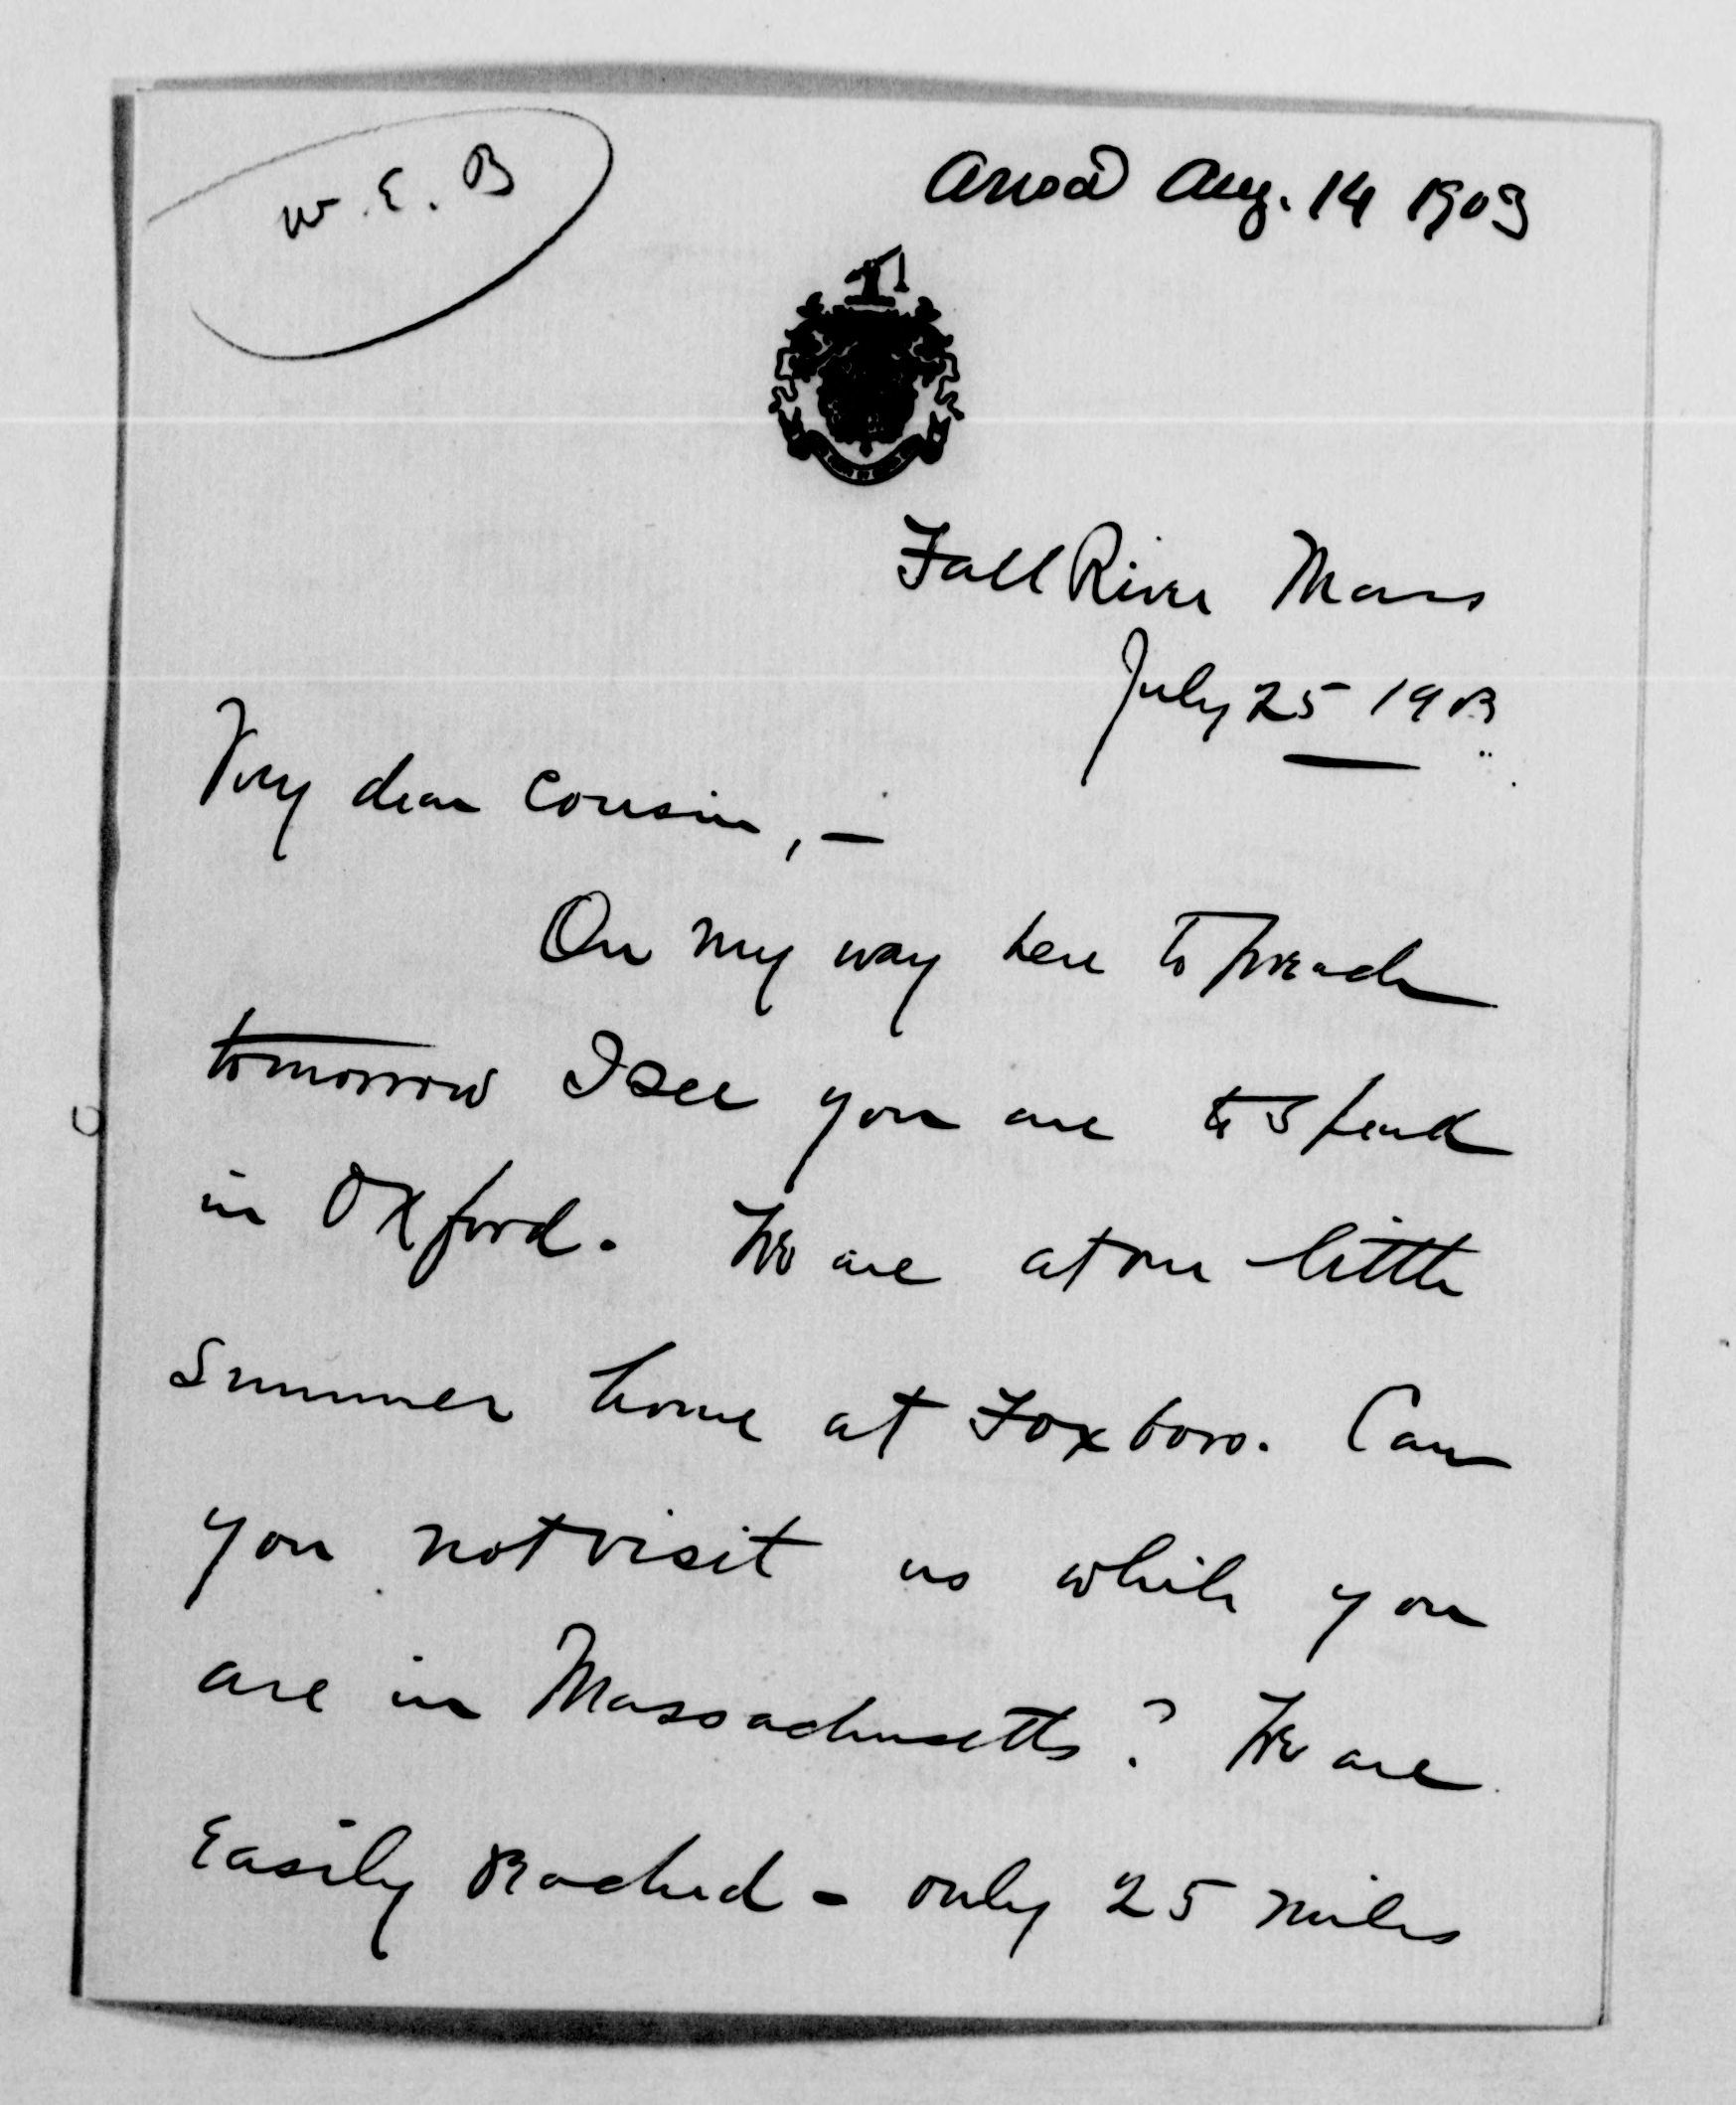 W. E. B
Answd Aug. 14 1903
Fall River Mass
July 25 1903
Very dear Cousin, —
On my way here to preach
tomorrow I see you are to speak
in Oxford. We are at our little
summer home at Foxboro. Can
you not visit us while you
are in Massachusetts? We are
Easily reached - only 25 miles